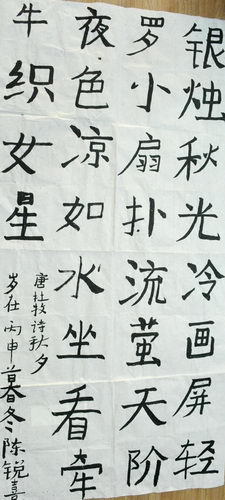 银烛秋光冷画屏轻
罗小扇扑流萤天阶
夜色凉如水坐看牵
牛织女星
唐杜牧诗秋夕
岁在丙申暮冬陈锐喜